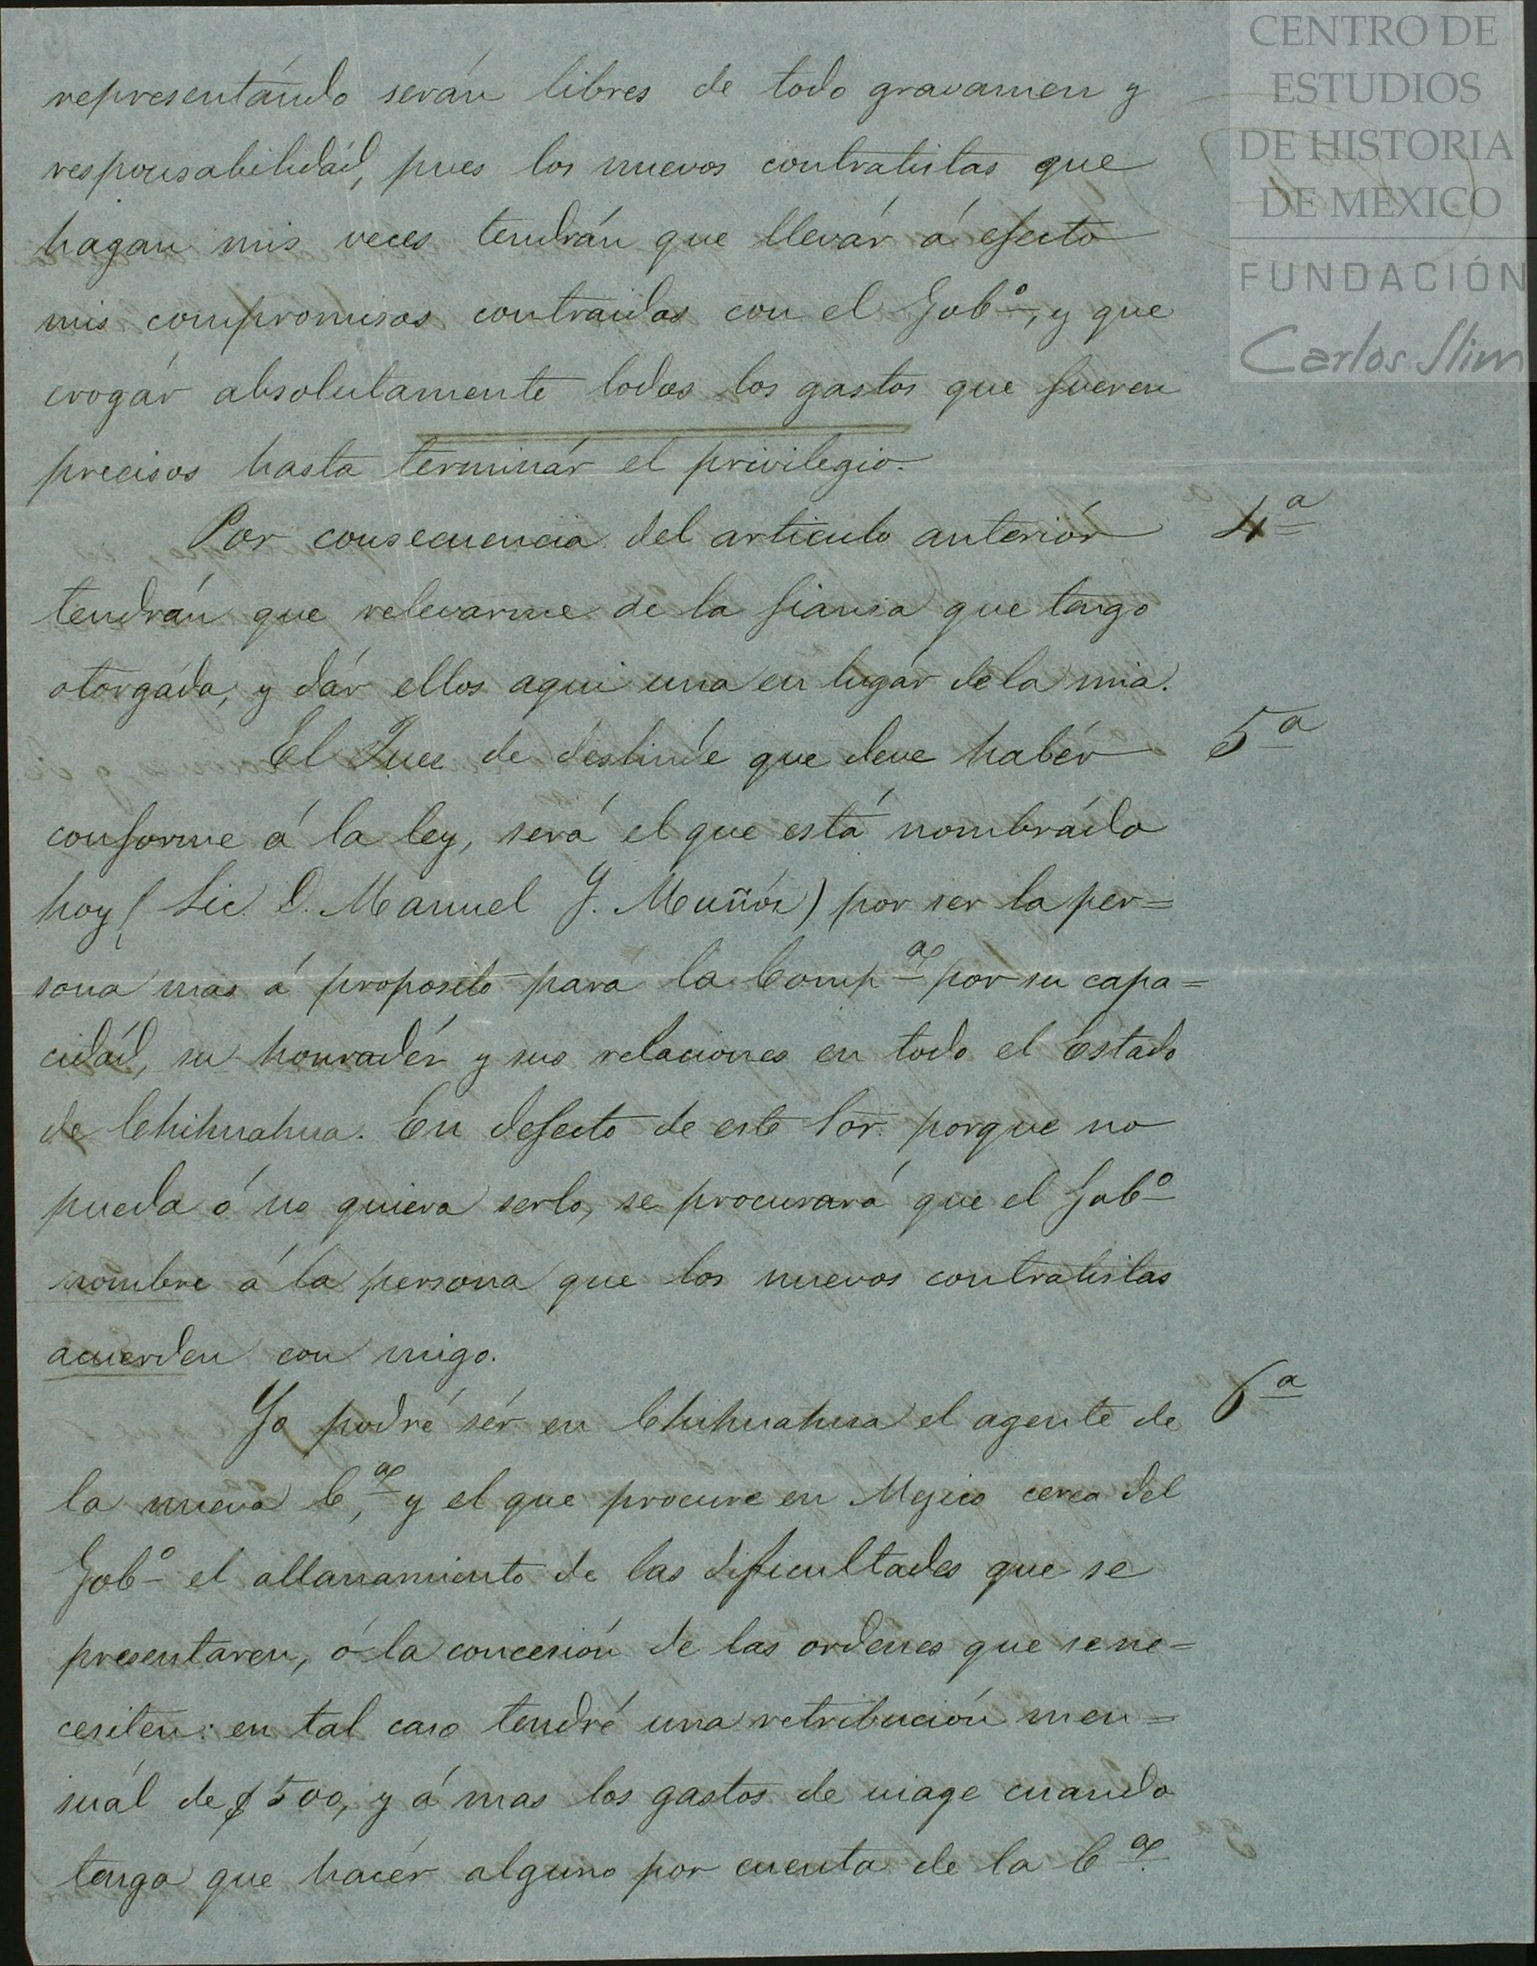 CENTRO DE
ESTUDIOS
DE HISTORIA
DE MEXICO
FUNDACIÓN
Carlos Slim
representándo serán libres de todo gravamen y
responsabilidád, pues los nuevos contratistas que
hagan mis veces tendrán que llevár á efecto
mis compromisos contraidos con el Gobº, y que
erogár absolutamente todos los gastos que fueren
precisos hasta terminár el privilegio.
Por consecuencia del articulo anteriór 4ª
tendrán que relevarme de la fiansa que tengo
otorgáda, y dár ellos aqui una en lugár de la mia.
El Jues de deslinde que deve habér 5ª
conforme á la ley, será el que está nombrádo
hoy (Lic. D. Manuel J. Muñós) por ser la per=
sona mas á proposito para la Compª por su capa=
cidád, su honradéz y sus relaciones en todo el Estado
de Chihuahua. En defecto de este Sor. porque no
pueda ó no quiera serlo, se procurará que el Gobº
nombre á la persona que los nuevos contratistas
acuerden con migo.
Yo podré sér en Chihuahua el agente de 6ª
la nueva Cª, y el que procure en Mejico cerca del
Gobº el allanamiento de las dificultades que se
presentaren, ó la concesión de las ordenes que se ne=
cesiten: en tal caso tendré una retribución men=
suál de $500, y á mas los gastos de viage cuando
tenga que hacér alguno por cuenta de la Cª.